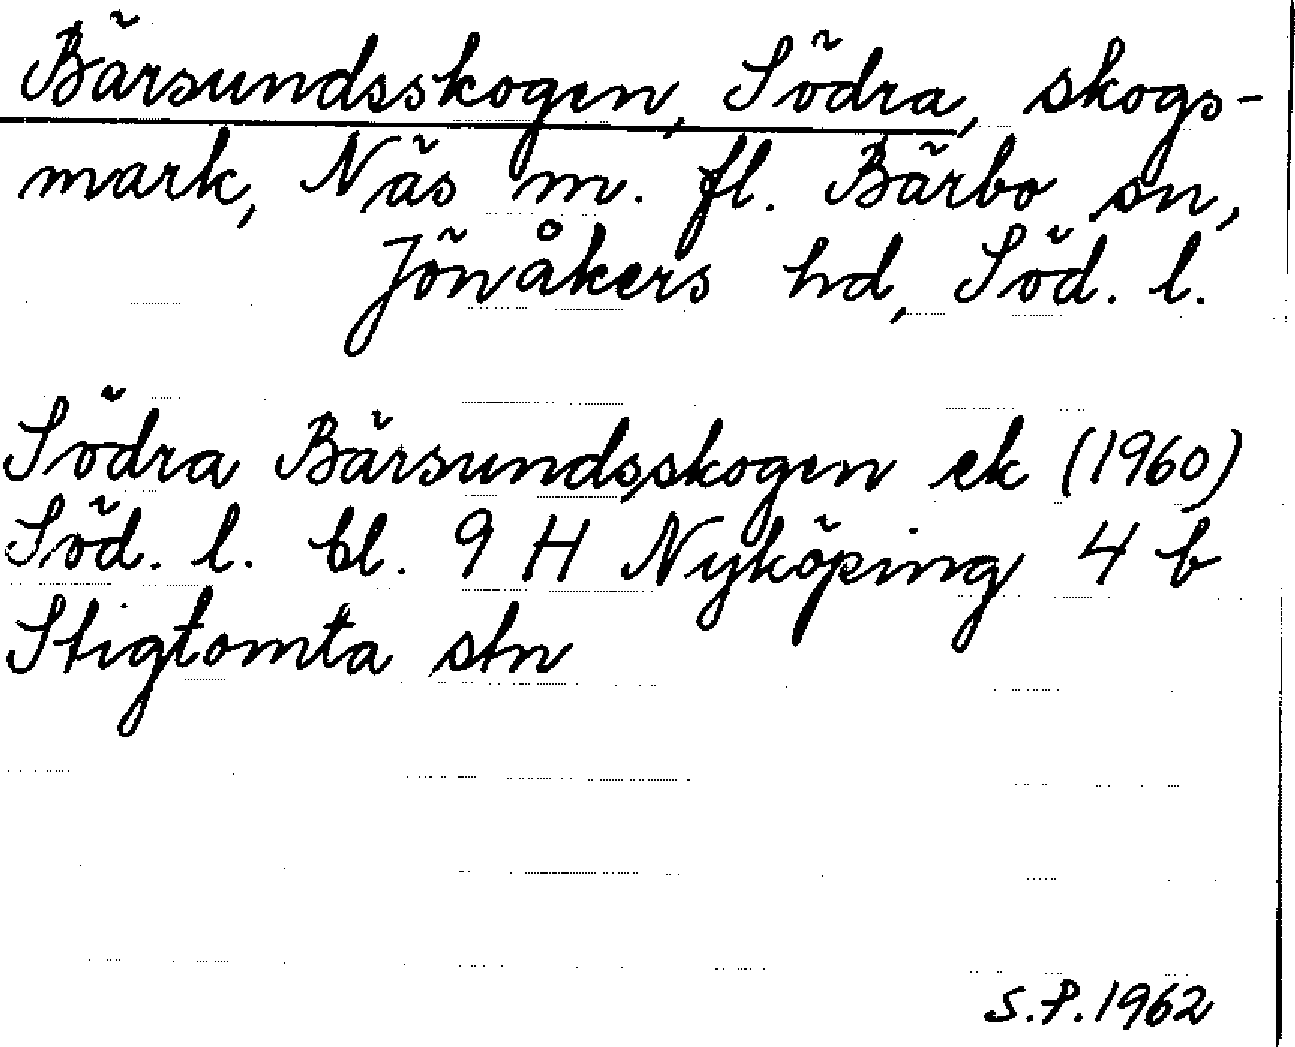 Bärsundsskogen, Södra, skogs-
mark, Näs m. fl. Bärbo sn,
Jönåkers hd, Söd. l.
Södra Bärsundsskogen ek (1960)
Söd. l. bl. 9 H Nyköping 4 b
Stigtomta stn
S.P. 1962